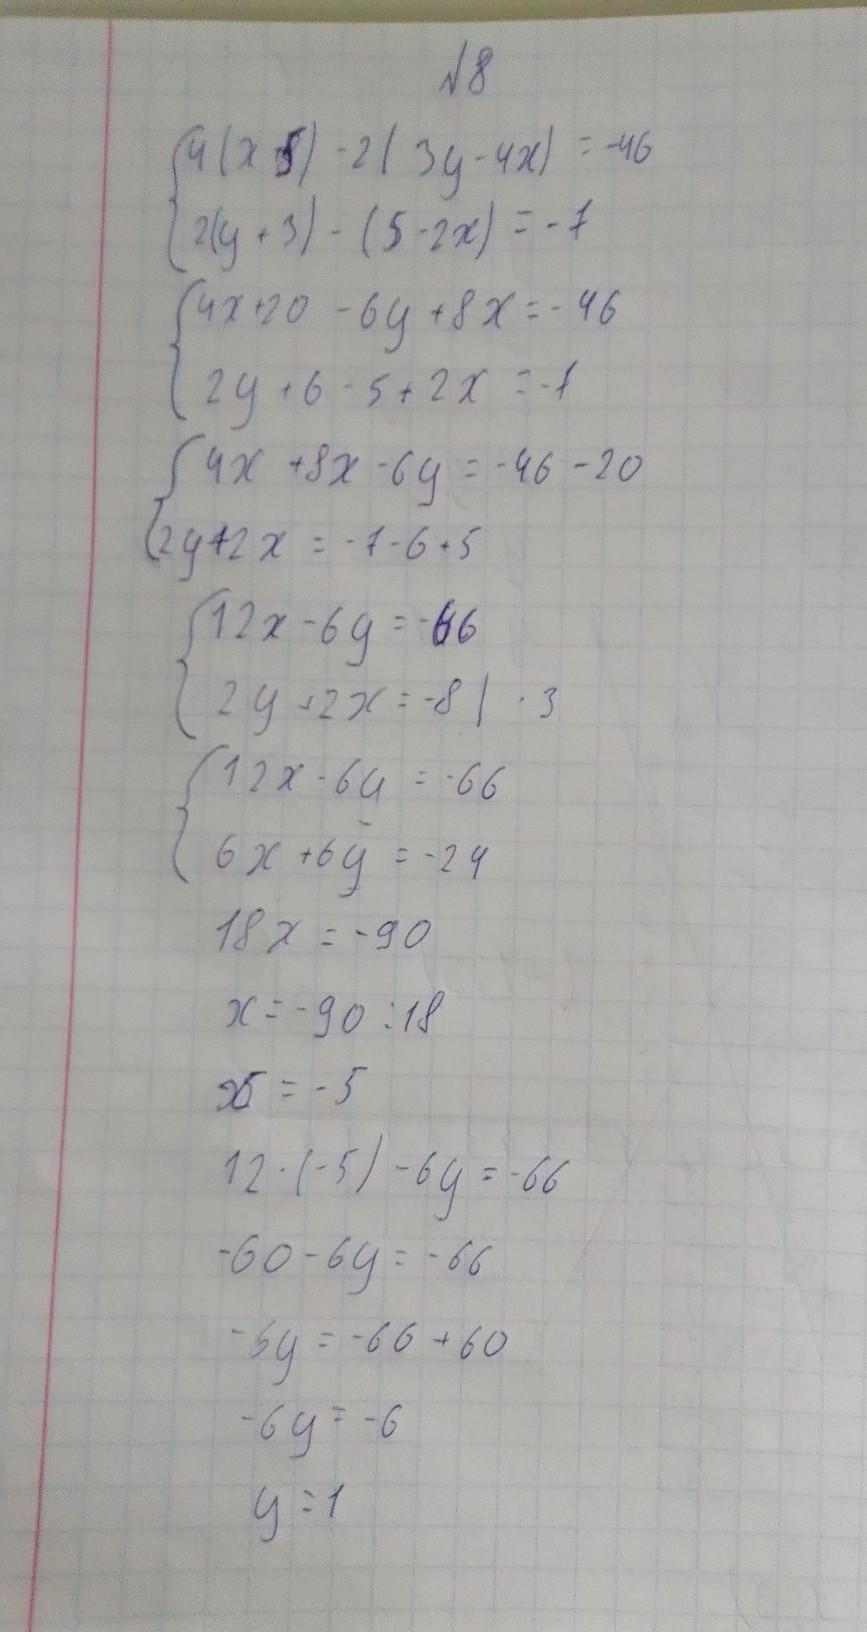 №8
4(x+5)-2(3y-4x)=-46
2(y+3)-(5-2x)=-7
4x+20-6y+8x=-46
2y+6-5+2x=-7
4x+8x-6y=-46-20
2y+2x=-7-6+5
12x-6y=-66
2y+2x=-8|·3
12x-6y=-66
6x+6y=-24
18x=-90
x=-90:18
x=-5
12·(-5)-6y=-66
-60-6y=-66
-6y=-66+60
-6y=-6
y=1